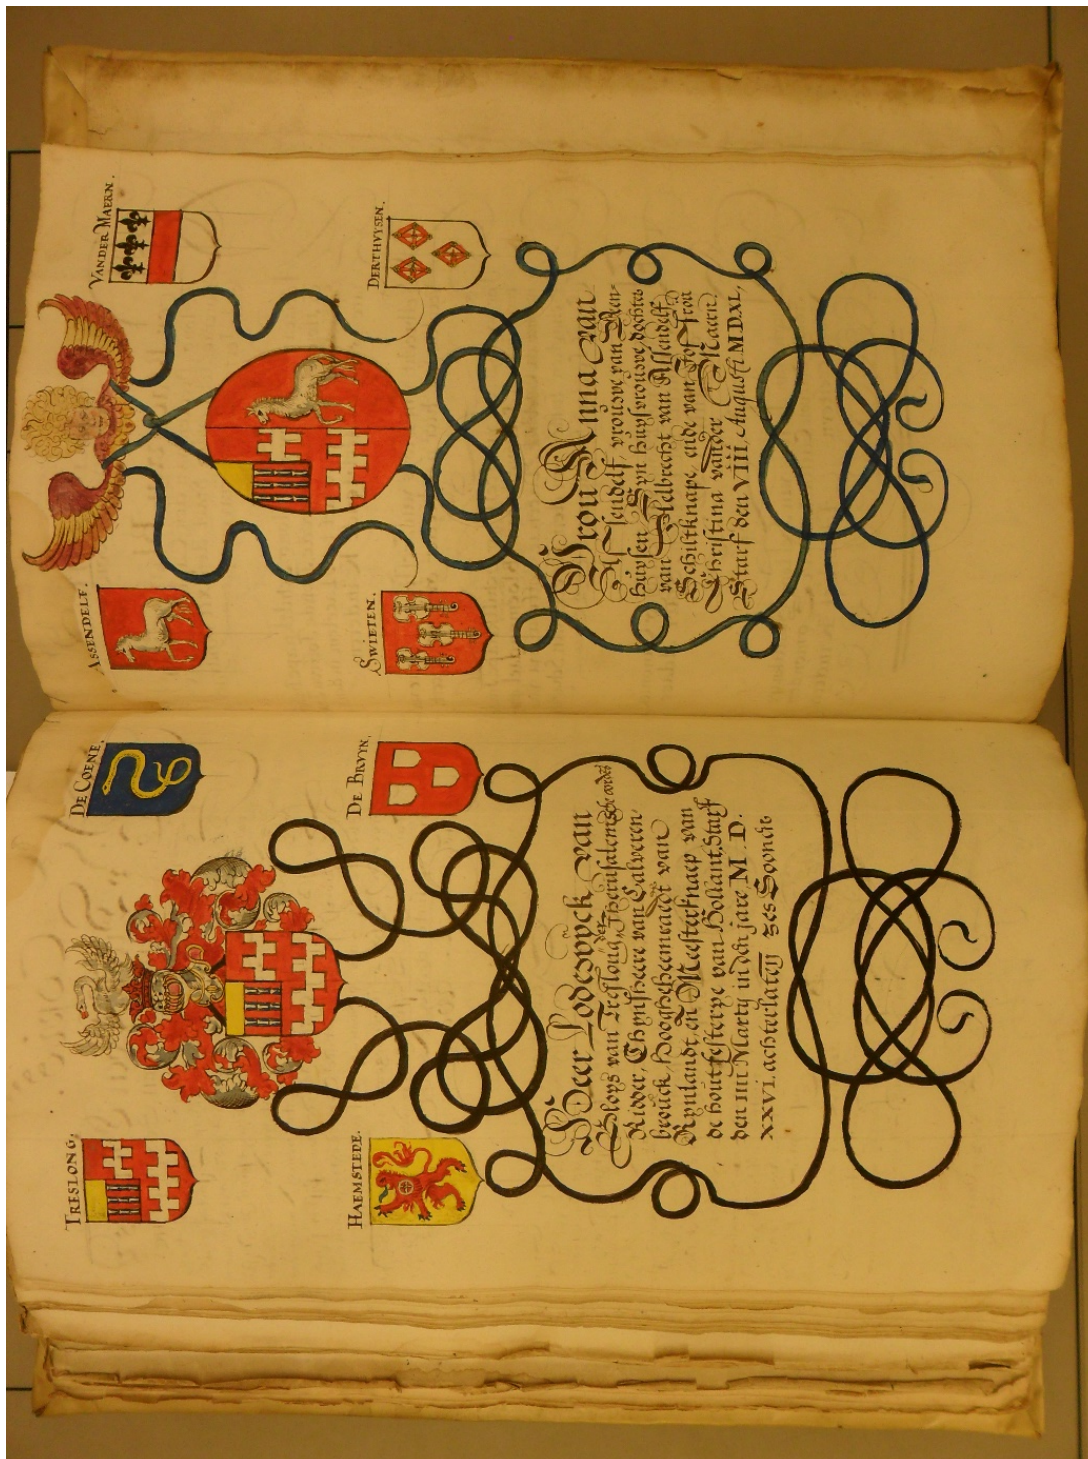 TRESLONG.
DE COENE.
HAEMSTEDE.
DE BRVYN.
Heer Lodewyck van
Bloys van Treslong, der Iherusalemsche ordre
Ridder, Thynsheere van Calveren-
brouck, Hoogheheemraedt van
Rynlandt, en Meesterknaep van
de houtvesterye van Hollant, Starf
den IIII Martij in den jare M.D.
XXVI. achterlaten ses Soonen
ASSENDELF.
VANDER MAERN.
SWIETEN.
DERTHUYSEN.
Vrou Anna van
Assendelf, vrouwe van Ren-
huysen, Syn huysvrouwe, dochter
van Aelbrecht van Assendelf
Schiltknape, ende van Jof Frou
Christina vander Maern,
Starf den VIII, Augusti MDXL,